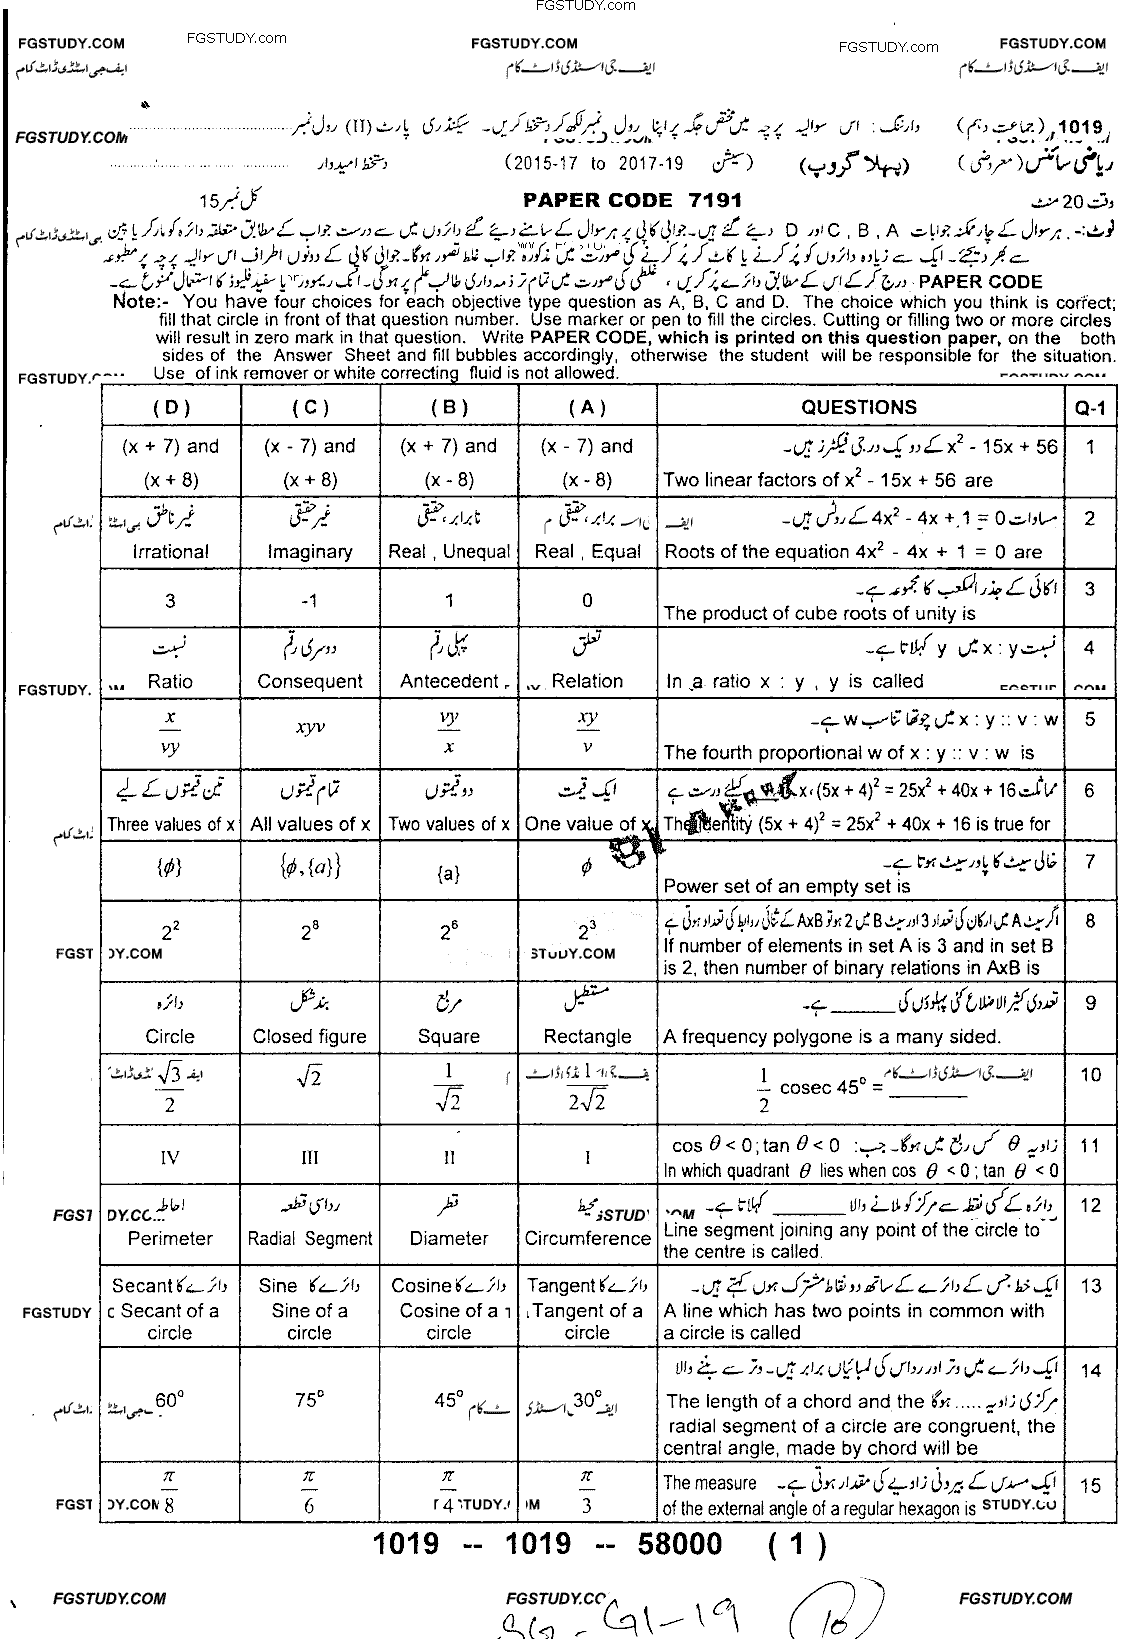 FGSTUDY.com
FGSTUDY.COM FGSTUDY.com FGSTUDY.COM FGSTUDY.com FGSTUDY.COM
ایف جی اسٹڈی ڈاٹ کام ایف جی اسٹڈی ڈاٹ کام ایف جی اسٹڈی ڈاٹ کام
1019 (جماعت دہم) وارننگ: اس سوالیہ پرچہ میں مختص جگہ پر اپنا رول نمبر لکھ کر دستخط کریں۔ سیکنڈری پارٹ (II) رول نمبر
FGSTUDY.COM
ریاضی سائنس (معروضی) (پہلا گروپ) (سیشن 2015-17 to 2017-19) دستخط امیدوار
وقت 20 منٹ PAPER CODE 7191 کل نمبر 15
نوٹ:- ہر سوال کے چار ممکنہ جوابات A , B , C اور D دیئے گئے ہیں۔ جوابی کاپی پر ہر سوال کے سامنے دیئے گئے دائروں میں سے درست جواب کے مطابق متعلقہ دائرہ کو مارکر یا پین
سے بھر دیجئے۔ ایک سے زیادہ دائروں کو پُر کرنے یا کاٹ کر پُر کرنے کی صورت میں مذکورہ جواب غلط تصور ہوگا۔ جوابی کاپی کے دونوں اطراف اس سوالیہ پرچہ پر مطبوعہ
PAPER CODE درج کر کے اس کے مطابق دائرے پُر کریں ، غلطی کی صورت میں تمام تر ذمہ داری طالب علم پر ہوگی۔ انک ریموور یا سفید فلیوڈ کا استعمال ممنوع ہے۔
Note:- You have four choices for each objective type question as A, B, C and D. The choice which you think is correct;
fill that circle in front of that question number. Use marker or pen to fill the circles. Cutting or filling two or more circles
will result in zero mark in that question. Write PAPER CODE, which is printed on this question paper, on the both
sides of the Answer Sheet and fill bubbles accordingly, otherwise the student will be responsible for the situation.
Use of ink remover or white correcting fluid is not allowed.
(D) (C) (B) (A) QUESTIONS Q-1
(x + 7) and (x - 7) and (x + 7) and (x - 7) and x² - 15x + 56 کے دو یک درجی فیکٹرز ہیں۔ 1
(x + 8) (x + 8) (x - 8) (x - 8) Two linear factors of x² - 15x + 56 are
غیر ناطق غیر حقیقی نابرابر، حقیقی برابر، حقیقی مساوات 4x² - 4x + 1 = 0 کے روٹس ہیں۔ 2
Irrational Imaginary Real , Unequal Real , Equal Roots of the equation 4x² - 4x + 1 = 0 are
اکائی کے جذر المکعب کا مجموعہ ہے۔ 3
3 -1 1 0 The product of cube roots of unity is
نسبت دوسری رقم پہلی رقم تعلق نسبت x : y میں y کہلاتا ہے۔ 4
FGSTUDY. Ratio Consequent Antecedent Relation In a ratio x : y , y is called
x/vy xyv vy/x xy/v x : y :: v : w میں چوتھا تناسب w ہے۔ 5
The fourth proportional w of x : y :: v : w is
تین قیمتوں کے لیے تمام قیمتوں دو قیمتوں ایک قیمت مماثلت (5x + 4)² = 25x² + 40x + 16 ،x کیلئے درست ہے 6
Three values of x All values of x Two values of x One value of x The identity (5x + 4)² = 25x² + 40x + 16 is true for
{ϕ} {ϕ,{a}} {a} ϕ خالی سیٹ کا پاور سیٹ ہوتا ہے۔ 7
Power set of an empty set is
2² 2⁸ 2⁶ 2³ اگر سیٹ A میں ارکان کی تعداد 3 اور سیٹ B میں 2 ہو تو AxB کے ثنائی روابط کی تعداد ہوتی ہے 8
If number of elements in set A is 3 and in set B
is 2, then number of binary relations in AxB is
دائرہ بند شکل مربع مستطیل تعددی کثیر الاضلاع کئی پہلوؤں کی ______ ہے۔ 9
Circle Closed figure Square Rectangle A frequency polygone is a many sided.
√3/2 √2 1/√2 1/2√2 1/2 cosec 45° = ______ 10
زاویہ θ کس ربع میں ہوگا۔ جب: cos θ < 0 ; tan θ < 0 11
IV III II I In which quadrant θ lies when cos θ < 0 ; tan θ < 0
احاطہ رداسی قطعہ قطر محیط دائرہ کے کسی نقطہ سے مرکز کو ملانے والا ______ کہلاتا ہے۔ 12
Perimeter Radial Segment Diameter Circumference Line segment joining any point of the circle to
the centre is called.
دائرے کا Secant دائرے کا Sine دائرے کا Cosine دائرے کا Tangent ایک خط جس کے دائرے کے ساتھ دو نقاط مشترک ہوں کہتے ہیں۔ 13
FGSTUDY Secant of a Sine of a Cosine of a Tangent of a A line which has two points in common with
circle circle circle circle a circle is called
ایک دائرے میں وتر اور رداس کی لمبائیاں برابر ہیں۔ وتر سے بننے والا 14
60° 75° 45° 30° The length of a chord and the مرکزی زاویہ ..... ہوگا
radial segment of a circle are congruent, the
central angle, made by chord will be
π/8 π/6 π/4 π/3 The measure ایک مسدس کے بیرونی زاویے کی مقدار ہوتی ہے۔ 15
of the external angle of a regular hexagon is
1019 -- 1019 -- 58000 (1)
FGSTUDY.COM FGSTUDY.CO FGSTUDY.COM
SG-G1-19